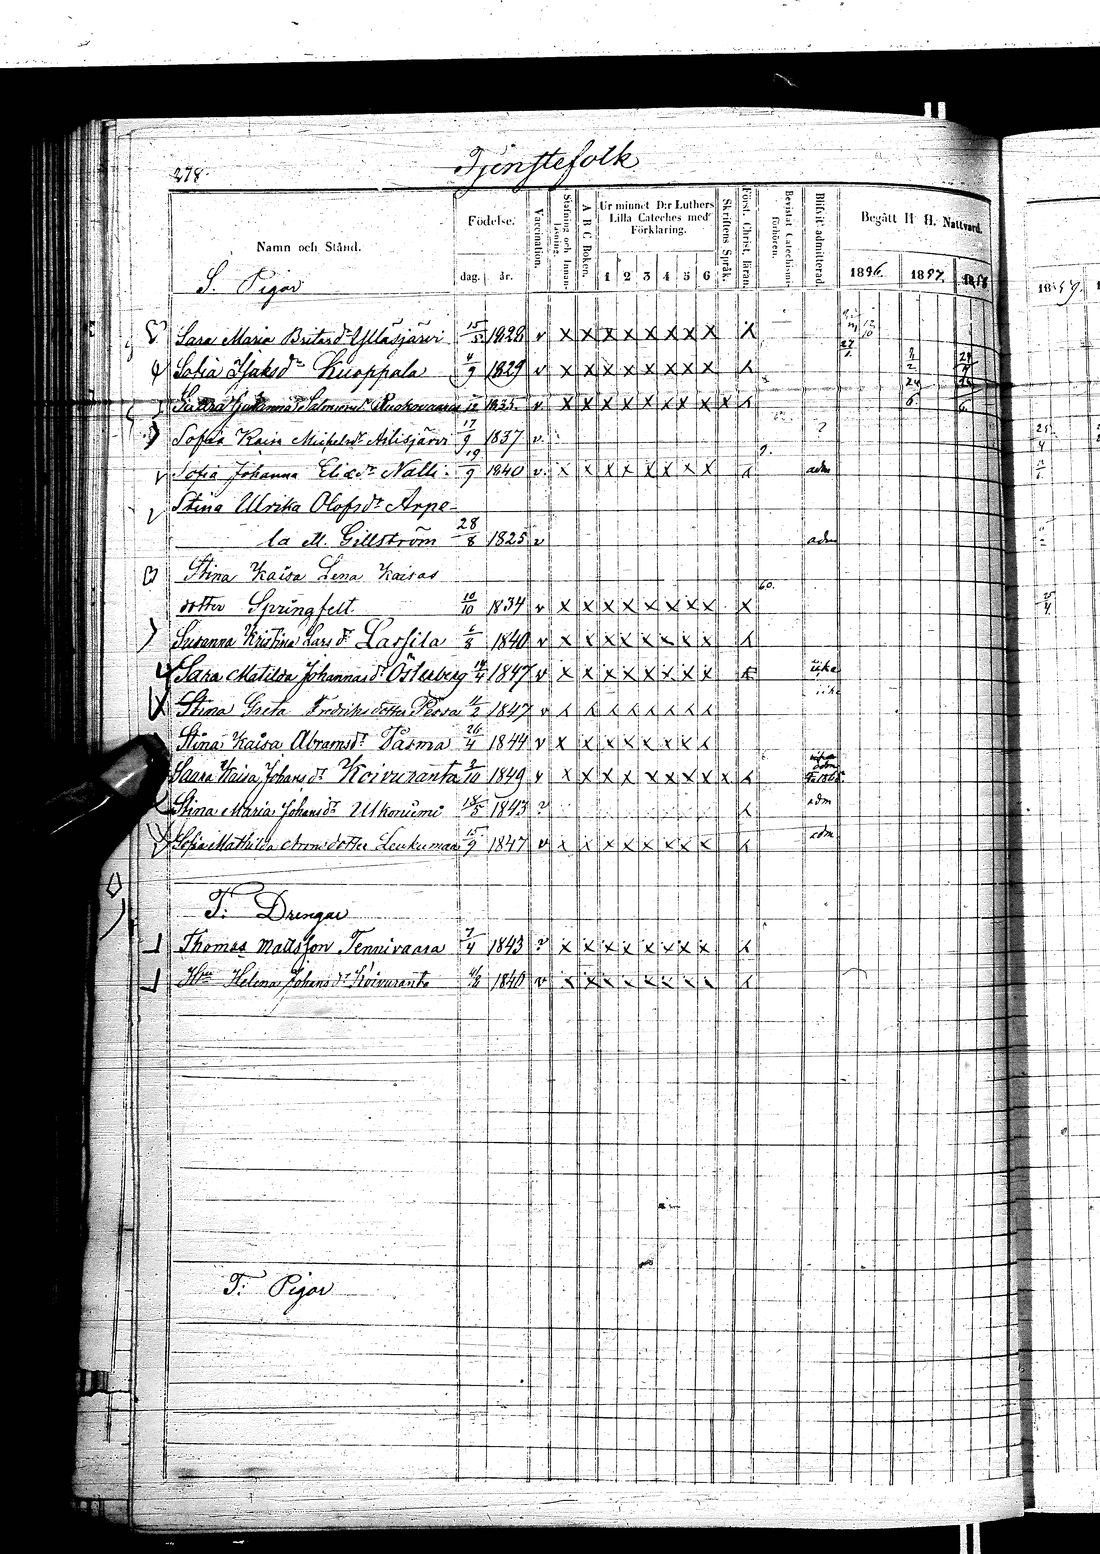 278.
Tjenstefolk
Namn och Stånd.
Födelse.
dag. år.
Vaccination.
Stafning och Innanläsning.
A B C Boken.
Ur minnet D:r Luthers Lilla Cateches med Förklaring.
1 2 3 4 5 6
Skriftens Språk.
Först. Christ. läran.
Bevistat Catechismi förhören.
Blifvit admitterad
Begått H. H. Nattvard.
1856. 1857. 1858
1859.
S. Pigor
Sara Maria Britasdr Ylläsjärvi 15/5 1828 v x x x x x x x x x
Sofia Isaksdr Kuoppala 4/9 1829 v x x x x x x x x x
Johanna Salomonsdr Ruokovaara 1835. v x x x x x x x x x x
Sofia Kaisa Michelsdr Äilisjärvi 17/9 1837 v. ?
Sofia Johanna Eliædr Nalli 19/9 1840 v. x x x x x x x x x adm
Stina Ulrika Olofsdr Arpe-
la M. Gillström 28/8 1825 v adm
Stina Kaisa Lena Kaisas
dotter Springfelt. 10/10 1834 v x x x x x x x x x 60.
Susanna Kristina Larsdr Lassila 6/8 1840 v x x x x x x x x x
Sara Matilda Johannasdr Österberg 14/4 1847 v x x x x x x x x x
Stina Greta Fredriksdotter Pessa 11/2 1847 v x x x x x x x x
Stina Kaisa Abramsdr Tåsma 26/4 1844 v x x x x x x x x
Saara Kaisa Johansdr Koivuranta 2/10 1849 v x x x x x x x x x x
Stina Maria Johansdr Ukoniemi 18/5 1843 ? x adm
Sofia Mathilda Aronsdotter Leukumaa 15/9 1847 v x x x x x x x x x adm.
T: Drengar
Thomas Mattsson Tennivaara 7/4 1843 ? x x x x x x x x x
Hu Helena Johansdr Koivuranta 1840 v x x x x x x x x x
T: Pigor